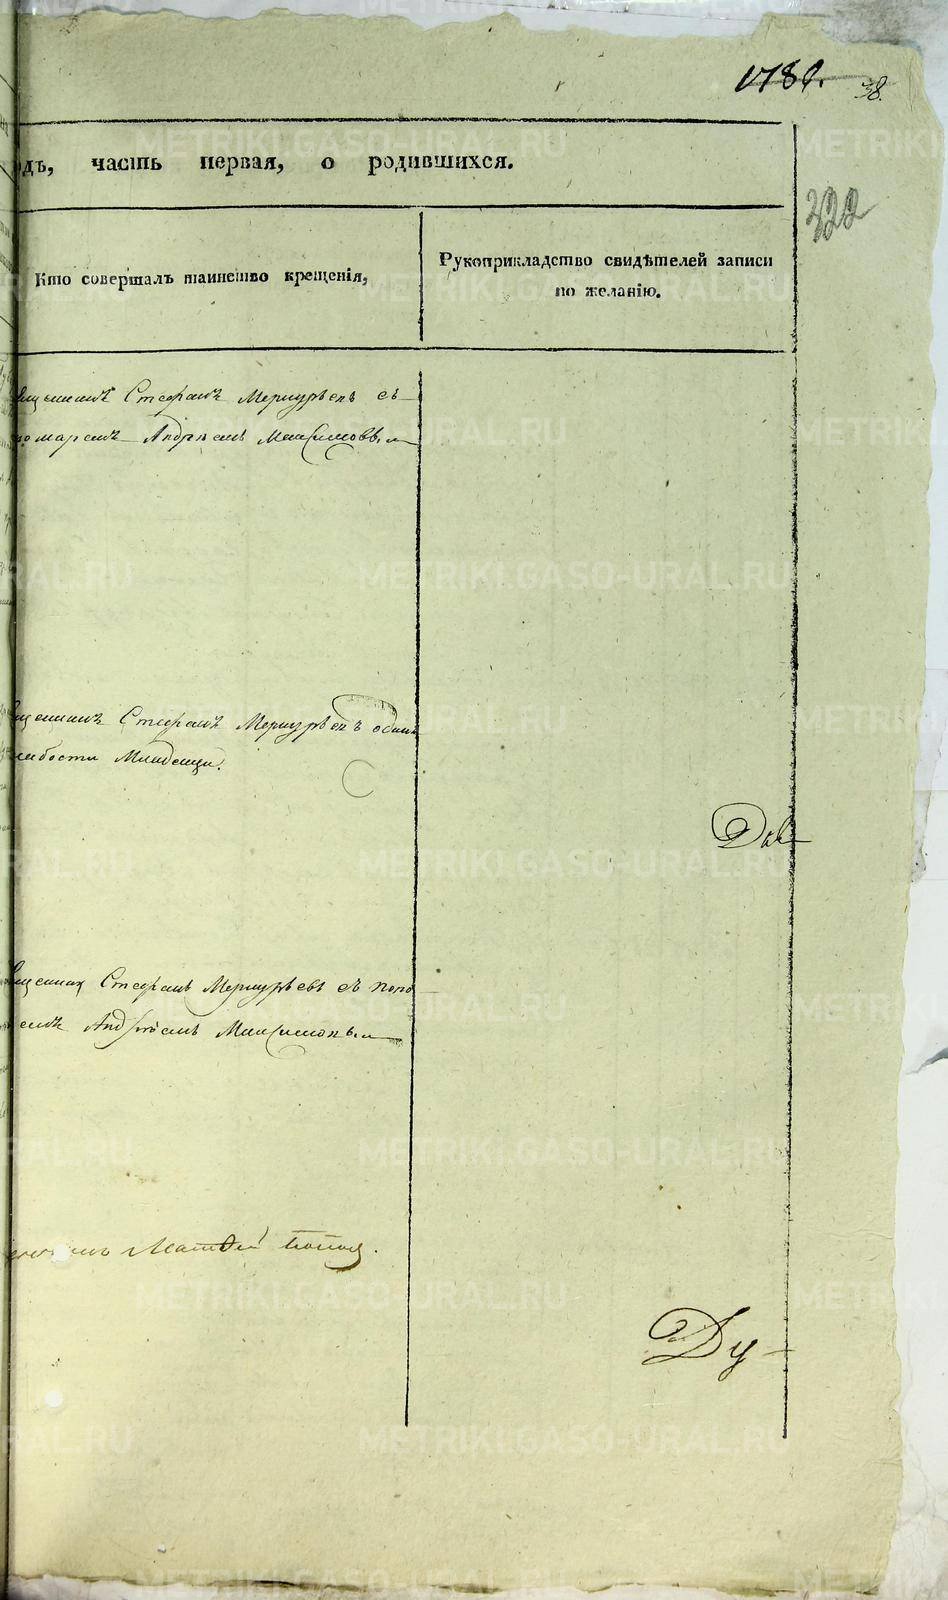 1789. 38.
одъ, часть первая, о родившихся.
322
Кто совершалъ таинство крещенія,
Рукоприкладство свидѣтелей записи
по желанію.
щенникъ Стефанъ Меркурьевъ съ
номаремъ Андрѣемъ Максимовым
щенникъ Стефанъ Меркурьевъ
слабости Младенца.
Дав
щенник Стефанъ Меркурьевъ съ поно
емъ Андрѣемъ Максимовым
Матвей Попов.
Ду